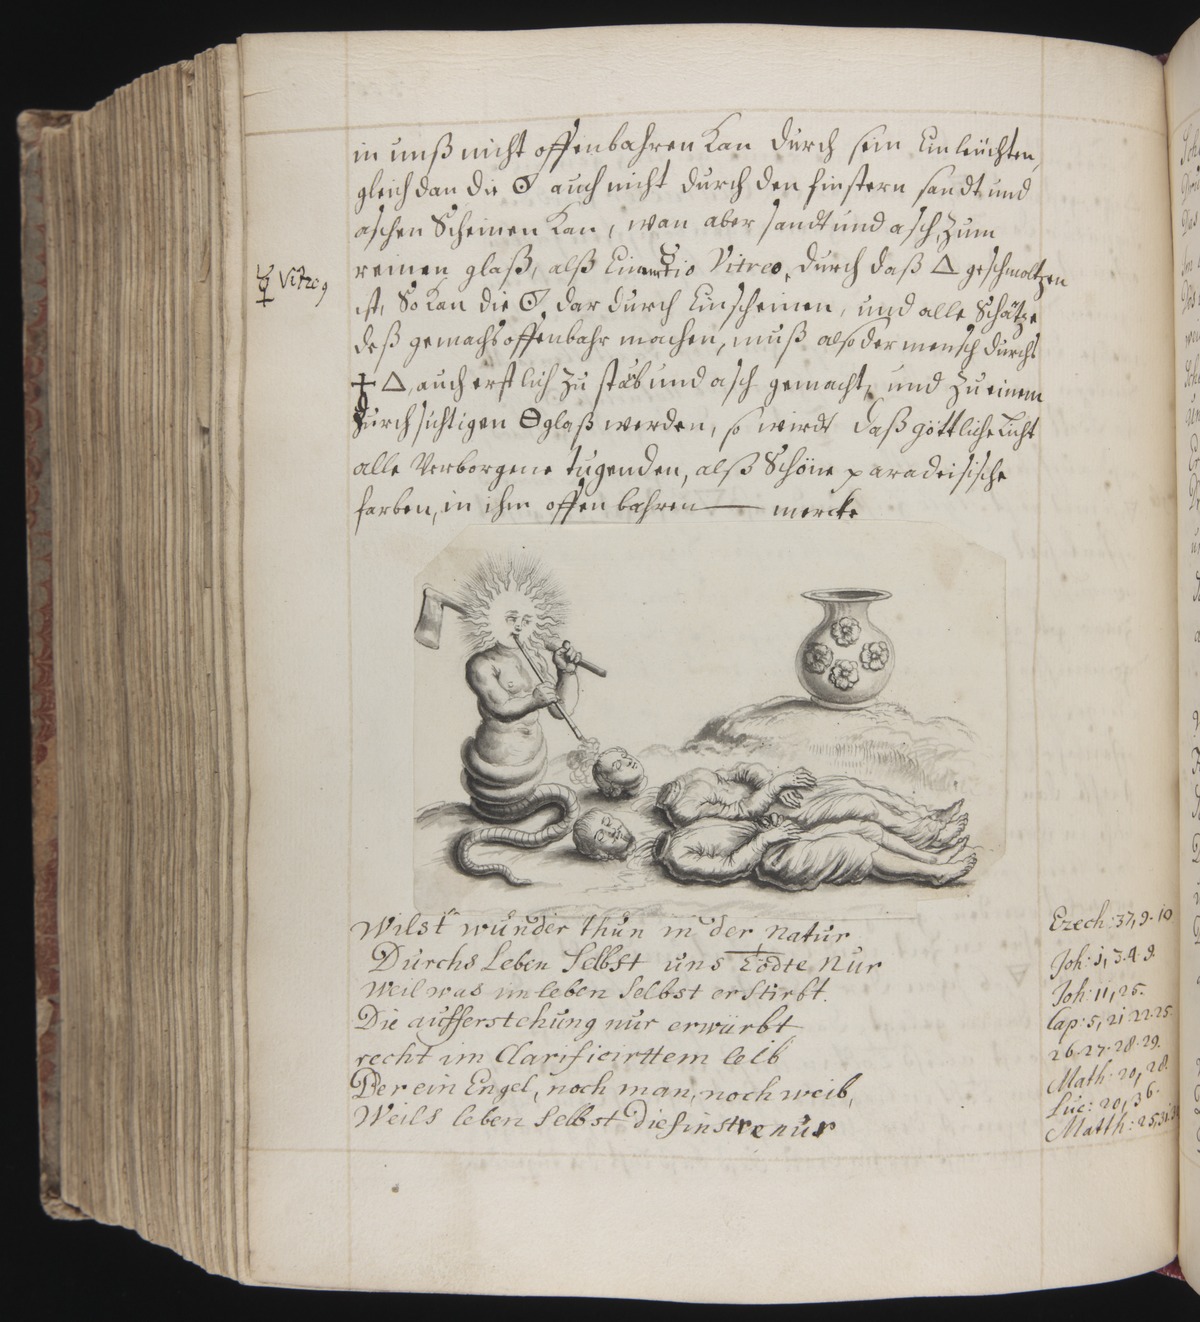 in unß nicht offenbahren kan durch sein Einleüchten,
gleich dan die ☉ auch nicht durch den finstern sandt und
aschen Scheinen kan, wan aber sandt und asch, zum
reinen glaß, alß Vitreo, durch daß △ geschmoltzen
☿ Vitreo
ist, So kan die ☉ dar durch Einscheinen, und alle Schätze
deß gemachs offenbahr machen, muß also der mensch durchs
△, auch erstlich zu staub und asch gemacht, und zu einem
durchsichtigen glaß werden, so wirdt daß göttliche Licht
alle Verborgene tugenden, alß Schöne paradeisische
farben, in ihm offenbahren — mercke
Wilst wunder thun in der natur
Durchs Leben Selbst uns Tödte nur
Weil was im leben Selbst erstirbt.
Die aufferstehung nur erwürbt
recht im Clarificirttem leib
Der ein Engel, noch man, noch weib,
Weils leben Selbst die finstre nur
Ezech: 37, 9. 10
Joh: 1, 3. 4. 9.
Joh: 11, 25.
Cap: 5, 21. 22. 25.
26. 27. 28. 29.
Math: 20, 28.
Luc: 20, 36.
Matth: 25,